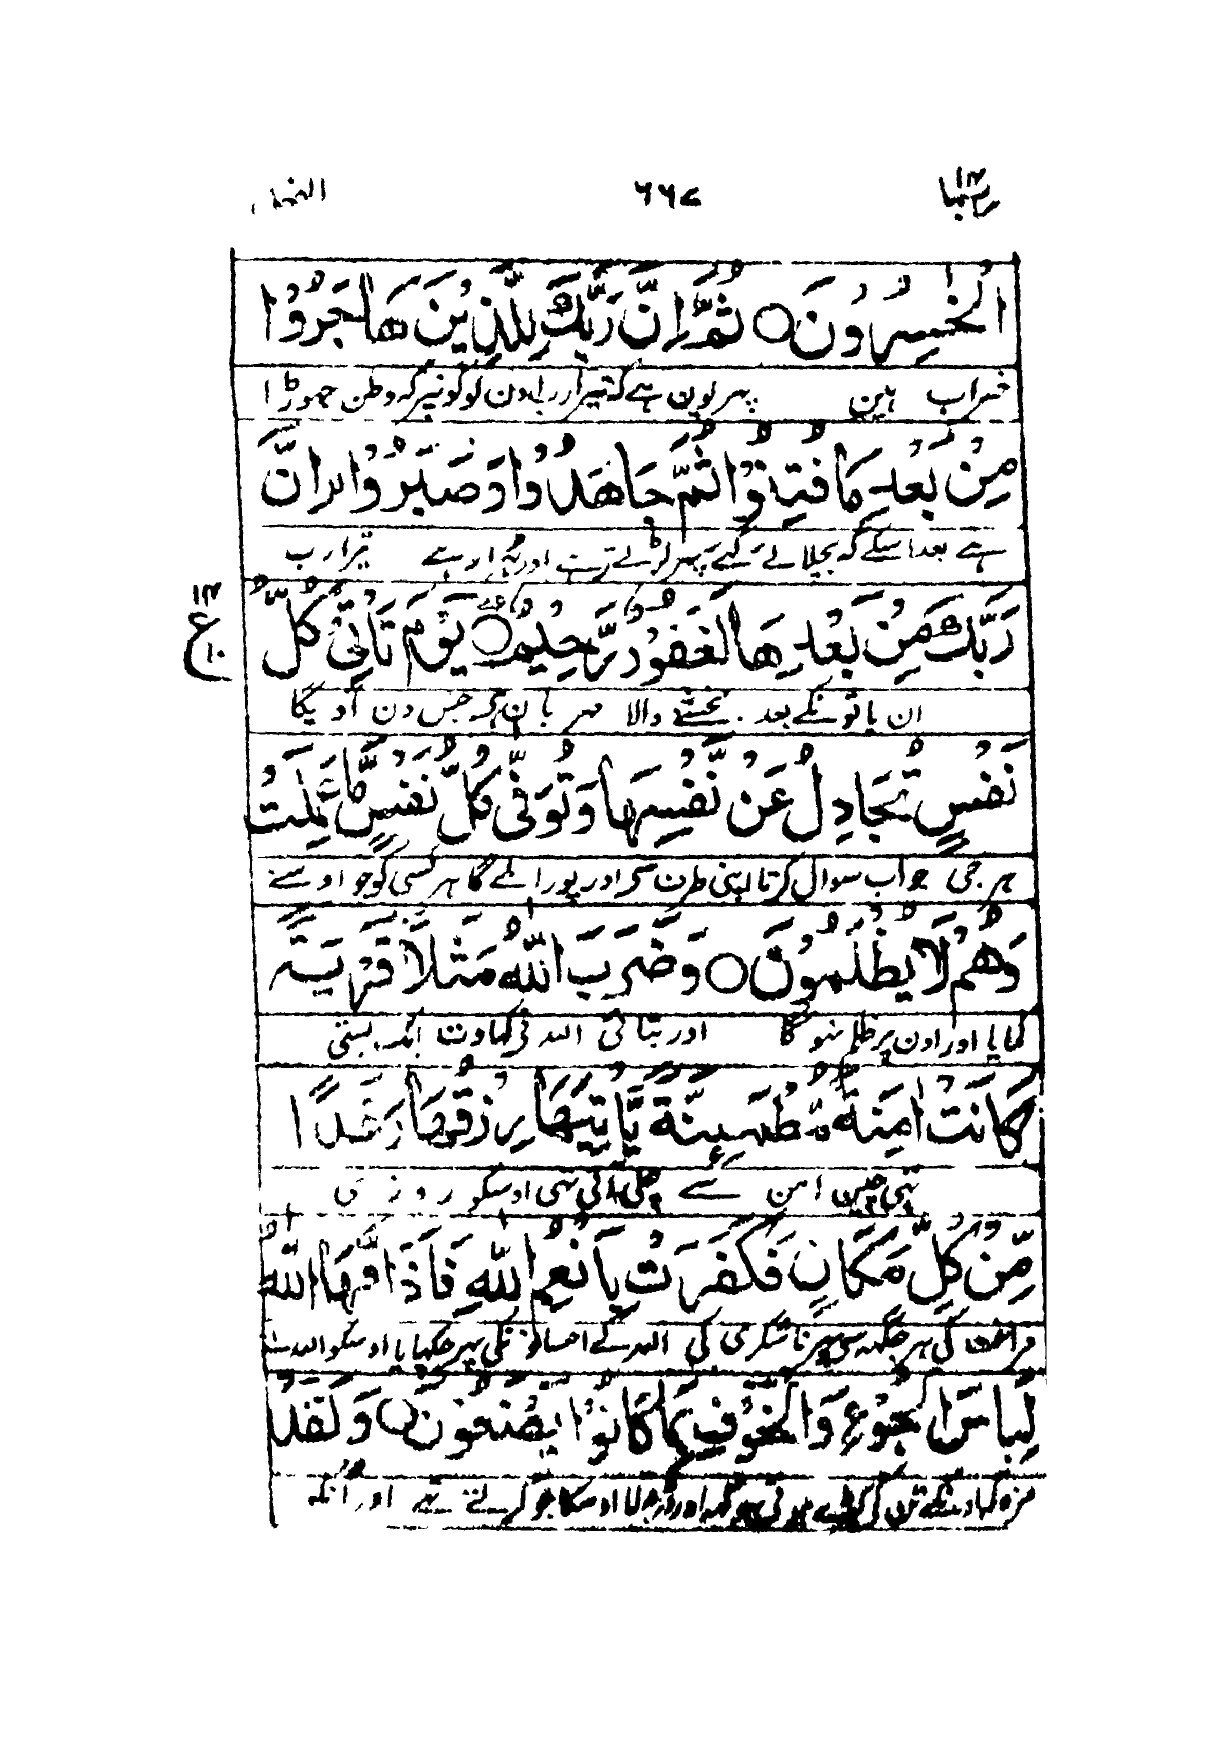 ربما ۱۴ ۶۶۷ النحل
الْخٰسِرُوْنَ ○ ثُمَّ اِنَّ رَبَّكَ لِلَّذِيْنَ هَاجَرُوْا
خراب ہین پہر یون ہے کہ تیرا رب اون لوگونپر کہ وطن چھوڑا
مِنْۢ بَعْدِ مَا فُتِنُوْا ثُمَّ جَاهَدُوْا وَصَبَرُوْا اِنَّ
ہے بعد اسکے کہ بچلائے گئے پہر لڑتے رہے اور ٹہرا رہے تیرا رب
رَبَّكَ مِنْۢ بَعْدِهَا لَغَفُوْرٌ رَّحِيْمٌ ○ يَوْمَ تَاْتِيْ كُلُّ
۱۴ ع ۱۰
ان باتونکے بعد بخشنے والا مہربان ہے جس دن آویگا
نَفْسٍ تُجَادِلُ عَنْ نَّفْسِهَا وَتُوَفّٰى كُلُّ نَفْسٍ مَّا عَمِلَتْ
ہر جی جواب سوال کرتا اپنی طرف سے اور پورا ملے گا ہر کسی کو جو اوسنے
وَهُمْ لَا يُظْلَمُوْنَ ○ وَضَرَبَ اللّٰهُ مَثَلًا قَرْيَةً
کمایا اور اون پر ظلم نہوگا اور بتائی اللہ نے کہاوت ایک بستی
كَانَتْ اٰمِنَةً مُّطْمَئِنَّةً يَّاْتِيْهَا رِزْقُهَا رَغَدًا
تہی چین امن سے چلی آتی تہی اوسکو روزی
مِّنْ كُلِّ مَكَانٍ فَكَفَرَتْ بِاَنْعُمِ اللّٰهِ فَاَذَاقَهَا اللّٰهُ
فراغت کی ہر جگہ سے پہر ناشکری کی اللہ کے احسانونکی پہر چکہایا اوسکو اللہ نے
لِبَاسَ الْجُوْعِ وَالْخَوْفِ بِمَا كَانُوْا يَصْنَعُوْنَ ○ وَلَقَدْ
مزہ کہ اونکے تن کے کپڑے ہوئے بھوکہ اور ڈر بدلا اوسکا جو کرتے تہے اور انکو